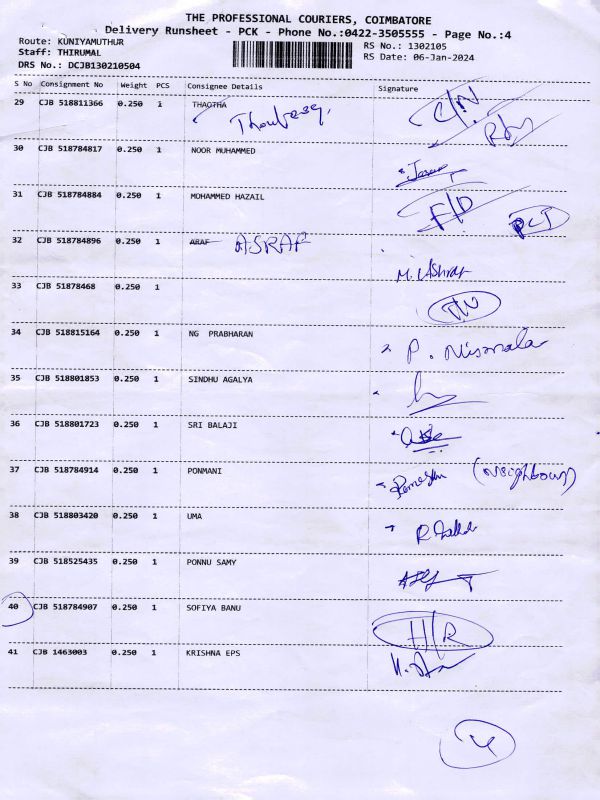 THE PROFESSIONAL COURIERS, COIMBATORE
Delivery Runsheet - PCK - Phone No.:0422-3505555 - Page No.:4
Route: KUNIYAMUTHUR
Staff: THIRUMAL
DRS No.: DCJB130210504
RS No.: 1302105
RS Date: 06-Jan-2024
S No Consignment No Weight PCS Consignee Details Signature
29 CJB 518811366 0.250 1 THAOTHA
30 CJB 518784817 0.250 1 NOOR MUHAMMED
31 CJB 518784884 0.250 1 MOHAMMED HAZAIL F/D
32 CJB 518784896 0.250 1 ARAF ASRAF
M. Ashraf
33 CJB 51878468 0.250 1
34 CJB 518815164 0.250 1 NG PRABHARAN P. Nirmala
35 CJB 518801853 0.250 1 SINDHU AGALYA
36 CJB 518801723 0.250 1 SRI BALAJI
37 CJB 518784914 0.250 1 PONMANI (Neighbour)
38 CJB 518803420 0.250 1 UMA
39 CJB 518525435 0.250 1 PONNU SAMY
40 CJB 518784907 0.250 1 SOFIYA BANU H/R
41 CJB 1463003 0.250 1 KRISHNA EPS